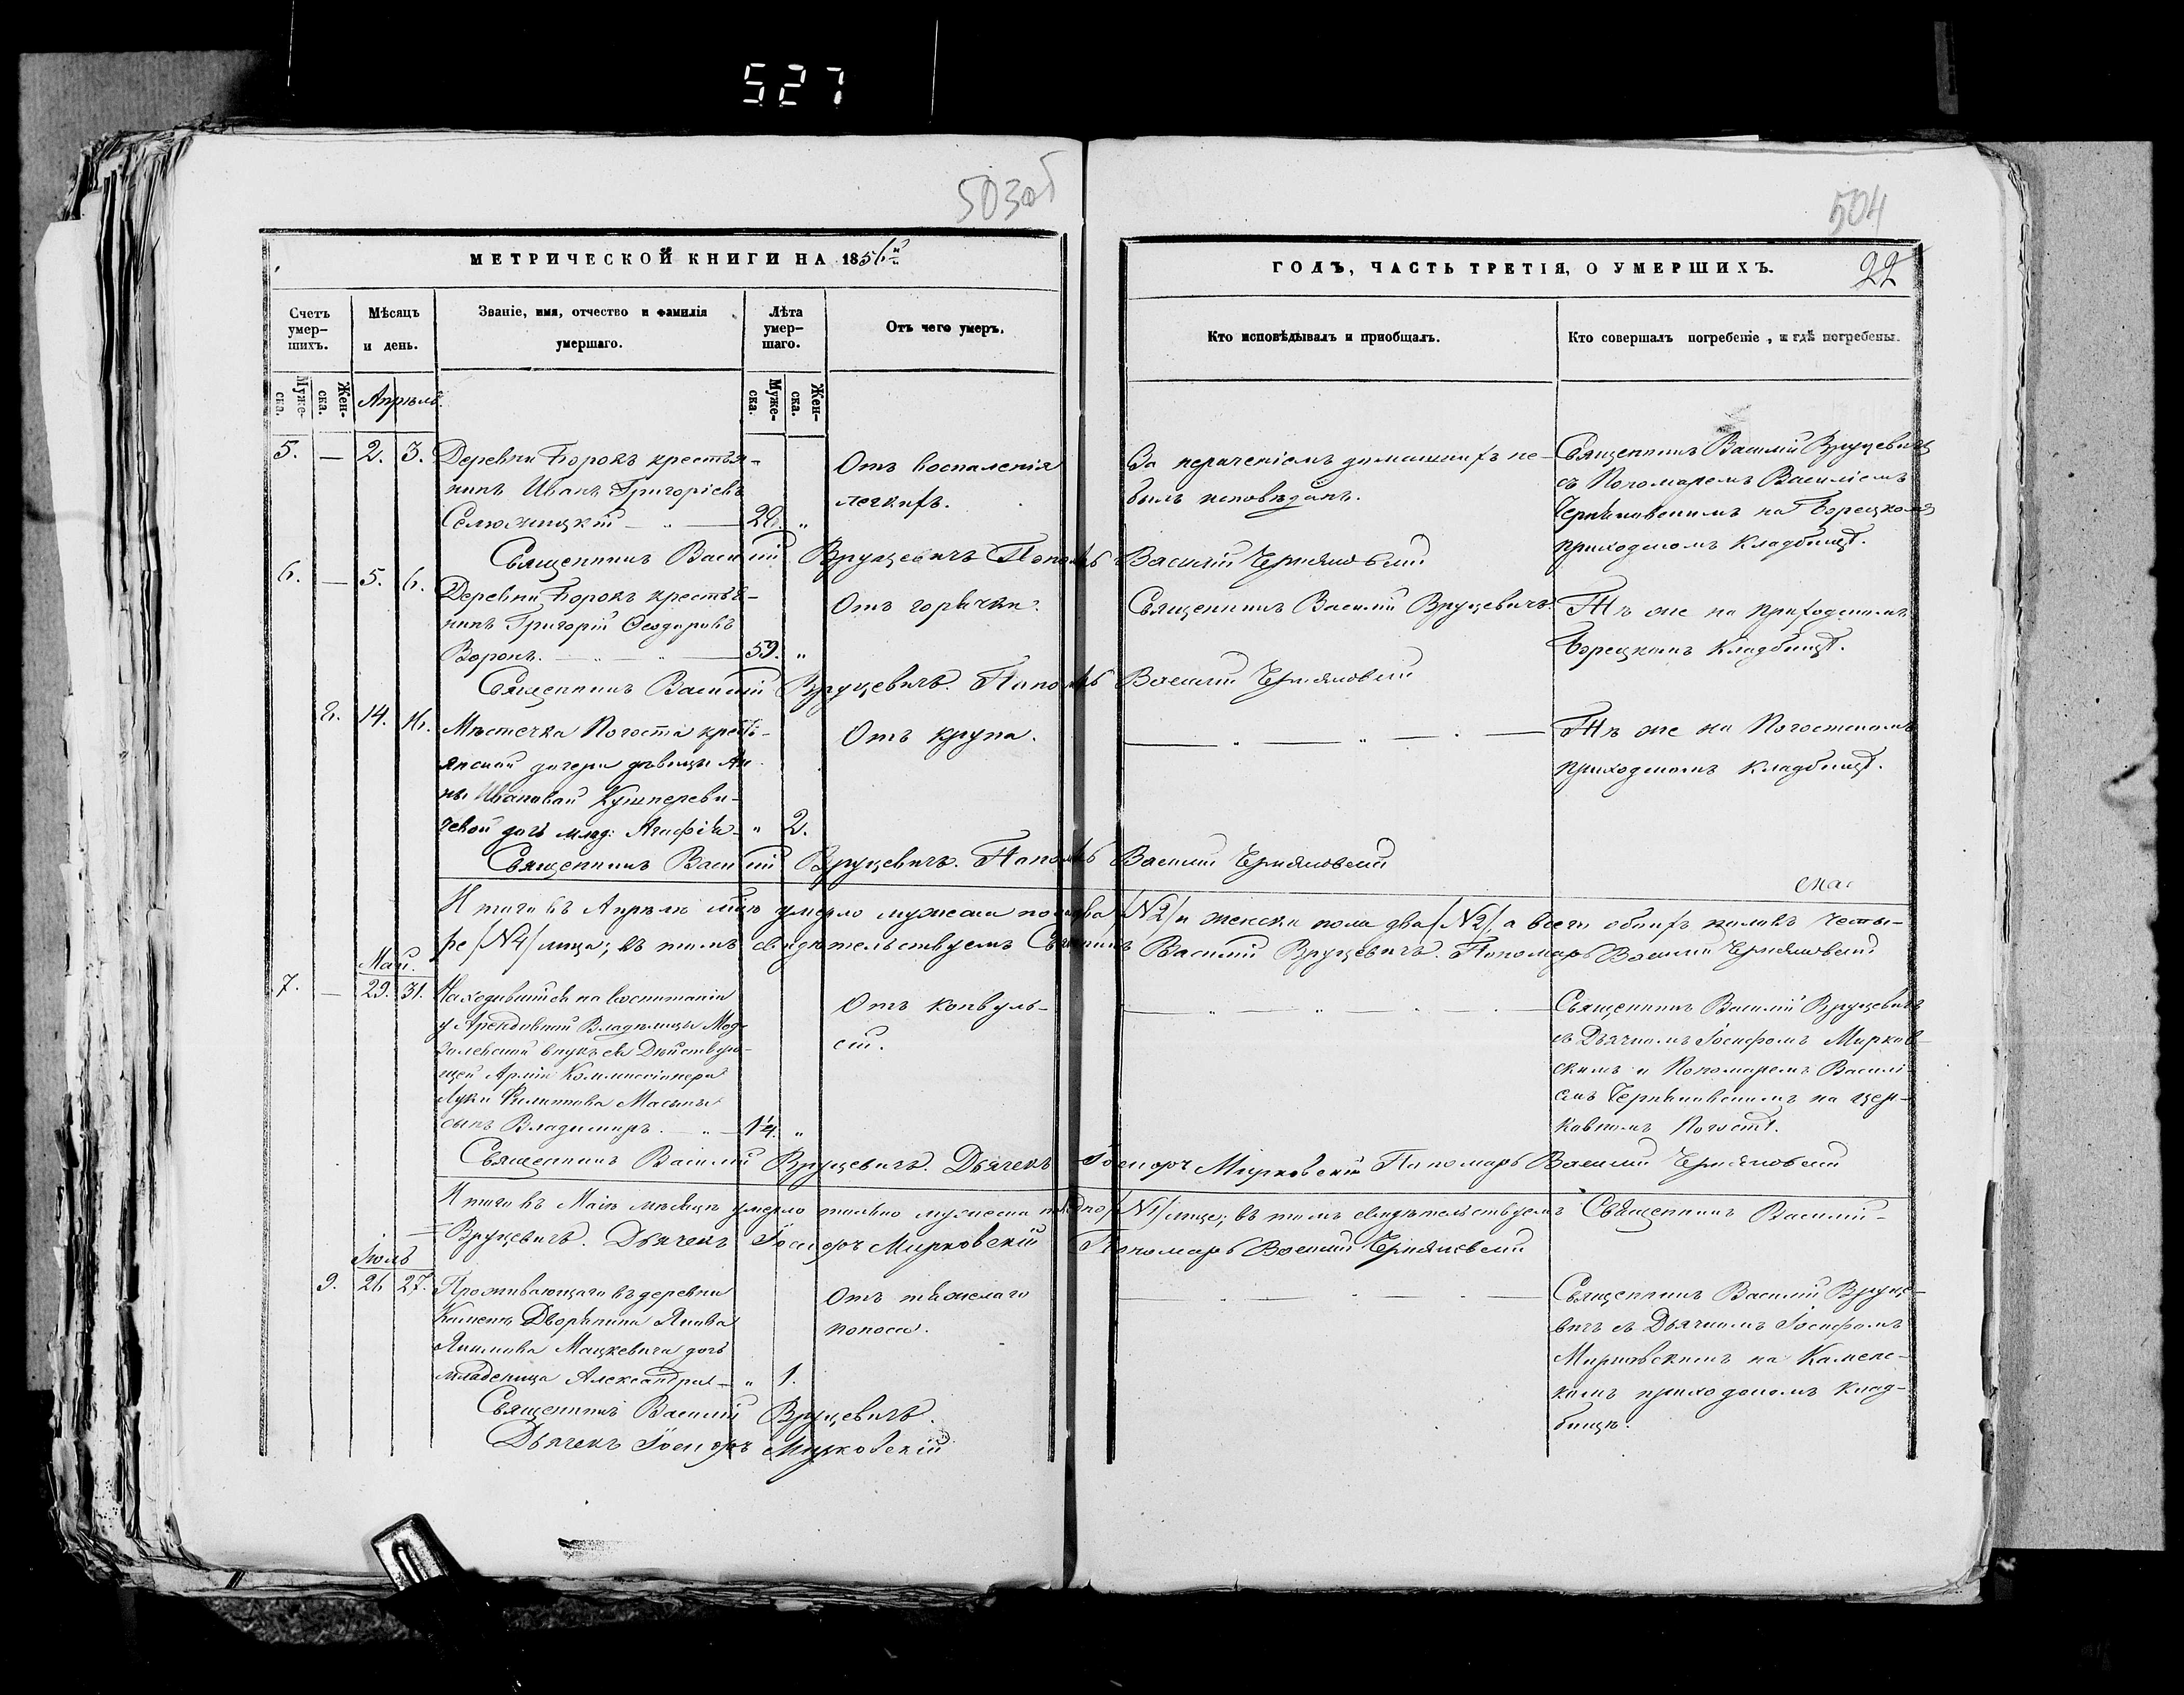 527
503об
504
МЕТРИЧЕСКОЙ КНИГИ НА 1856й
ГОДЪ, ЧАСТЬ ТРЕТІЯ, О УМЕРШИХЪ.
22
Счетъ умер-шихъ.
Мѣсяцъ и день.
Званіе, имя, отчество и фамилія умершаго.
Лѣта умер-шаго.
Отъ чего умеръ.
Кто исповѣдывалъ и приобщалъ.
Кто совершалъ погребеніе, и гдѣ погребены.
Муже-ска.
Жен-ска.
Муже-ска.
Жен-ска.
Апрѣль.
5. — 2. 3.
Деревни Борокъ крестья-
нинъ Иванъ Григоріевъ
28. „
Отъ воспаленія
легкихъ.
За нераченіемъ домашнихъ не-
былъ исповѣданъ.
Священникъ Василій Вруцевичъ
съ Пономаремъ Василіемъ
Черняковскимъ на Борецкомъ
приходскомъ кладбищѣ.
Священникъ Василій Вруцевичъ Пономарь Василій Черняковскій
6. — 5. 6.
Деревни Борокъ крестья-
нинъ Григорій Ѳеодоровъ
Воронъ. 59. „
Отъ горячки.
Священникъ Василій Вруцевичъ.
Тѣ же на приходскомъ
Борецкомъ кладбищѣ.
Священникъ Василій Вруцевичъ. Пономарь Василій Черняковскій
8. 14. 16.
Мѣстечка Погоста кресть-
янской дочери дѣвицы Ан-
ны Ивановой
дочь млад: Агафія „ 2.
Отъ крупа.
Тѣ же на Погостскомъ
приходскомъ кладбищѣ.
Священникъ Василій Вруцевичъ. Пономарь Василій Черняковскій
Итого въ Апрѣлѣ мцѣ умерло мужеска пола два /№2/ и женска пола два /№2/, а всего обоихъ половъ четы-
ре /№4/ лица; въ томъ свидѣтельствуемъ Священникъ Василій Вруцевичъ. Пономарь Василій Черняковскій
Май.
7. — 29. 31.
Находившійся на воспитаніи
внукъ ея Дѣйствую-
щей Арміи Коммиссіонера
Луки Филиппова
сынъ Владимиръ. 1¼. „
Отъ конвуль-
сій.
Священникъ Василій Вруцевичъ
съ Дьячкомъ Іосифомъ Мирков-
скимъ и Пономаремъ Василі-
емъ Черняковскимъ на цер-
ковномъ Погостѣ.
Священникъ Василій Вруцевичъ. Дьячекъ Іосифъ Мирковскій Пономарь Василій Черняковскій
Итого въ Маіѣ мѣсяцѣ умерло только мужеска пола одно /№1/ лице; въ томъ свидѣтельствуемъ Священникъ Василій
Вруцевичъ. Дьячекъ Іосифъ Мирковскій Пономарь Василій Черняковскій
Іюль
9. 26 27.
Проживающаго въ деревни
Камень Дворянина
Мацкевича дочь
младеница Александра „ 1.
Отъ тяжелаго
поноса.
Священникъ Василій Вруце-
вичъ съ Дьячкомъ Іосифомъ
Мирковскимъ на Каменс-
комъ приходскомъ клад-
бищѣ.
Священникъ Василій Вруцевичъ.
Дьячекъ Іосифъ Мирковскій